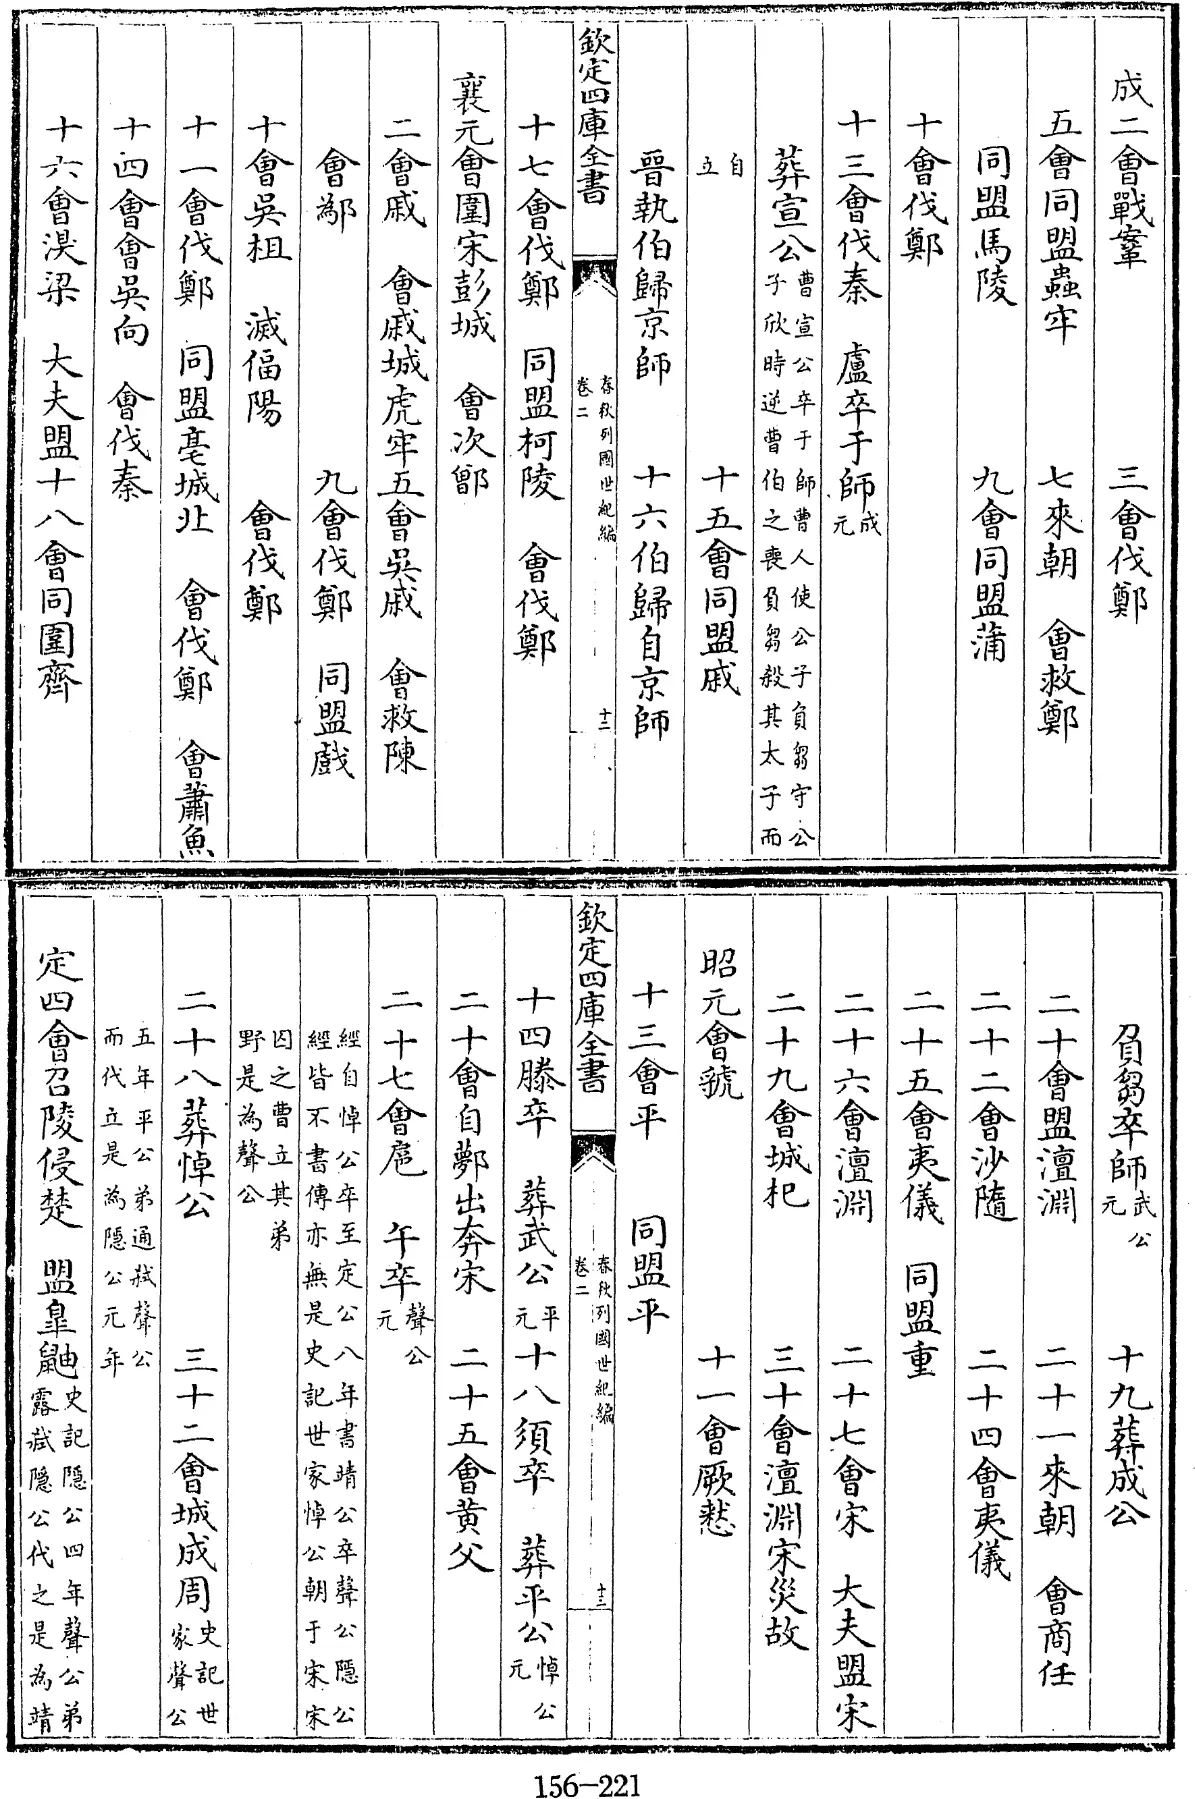 成二會戰鞌 三會伐鄭
五會同盟蟲牢 七來朝 會救鄭
同盟馬陵 九會同盟蒲
十會伐鄭
十三會伐秦 盧卒于師成
元
葬宣公曹宣公卒于師曹人使公子負芻守公
子欣時逆曹伯之喪負芻殺其太子而
自
立 十五會同盟戚
晉執伯歸京師 十六伯歸自京師
欽定四庫全書
春秋列國世紀編
卷二
十三
十七會伐鄭 同盟柯陵 會伐鄭
襄元會圍宋彭城 會次鄫
二會戚 會戚城虎牢五會吳戚 會救陳
會鄬 九會伐鄭 同盟戲
十會吳柤 滅偪陽 會伐鄭
十一會伐鄭 同盟亳城北 會伐鄭 會蕭魚
十四會會吳向 會伐秦
十六會湨梁 大夫盟十八會同圍齊
負芻卒師武公
元 十九葬成公
二十會盟澶淵 二十一來朝 會商任
二十二會沙隨 二十四會夷儀
二十五會夷儀 同盟重
二十六會澶淵 二十七會宋 大夫盟宋
二十九會城杞 三十會澶淵宋災故
昭元會虢 十一會厥憖
十三會平 同盟平
欽定四庫全書
春秋列國世紀編
卷二
十三
十四滕卒 葬武公平
元十八須卒 葬平公悼公
元
二十會自鄸出奔宋 二十五會黄父
二十七會扈 午卒聲公
元
經自悼公卒至定公八年書靖公卒聲公隱公
經皆不書傳亦無是史記世家悼公朝于宋宋
囚之曹立其弟
野是為聲公
二十八葬悼公 三十二會城成周史記世
家聲公
五年平公弟通弑聲公
而代立是為隱公元年
定四會召陵侵楚 盟臯鼬史記隱公四年聲公弟
露弑隱公代之是為靖
156-221